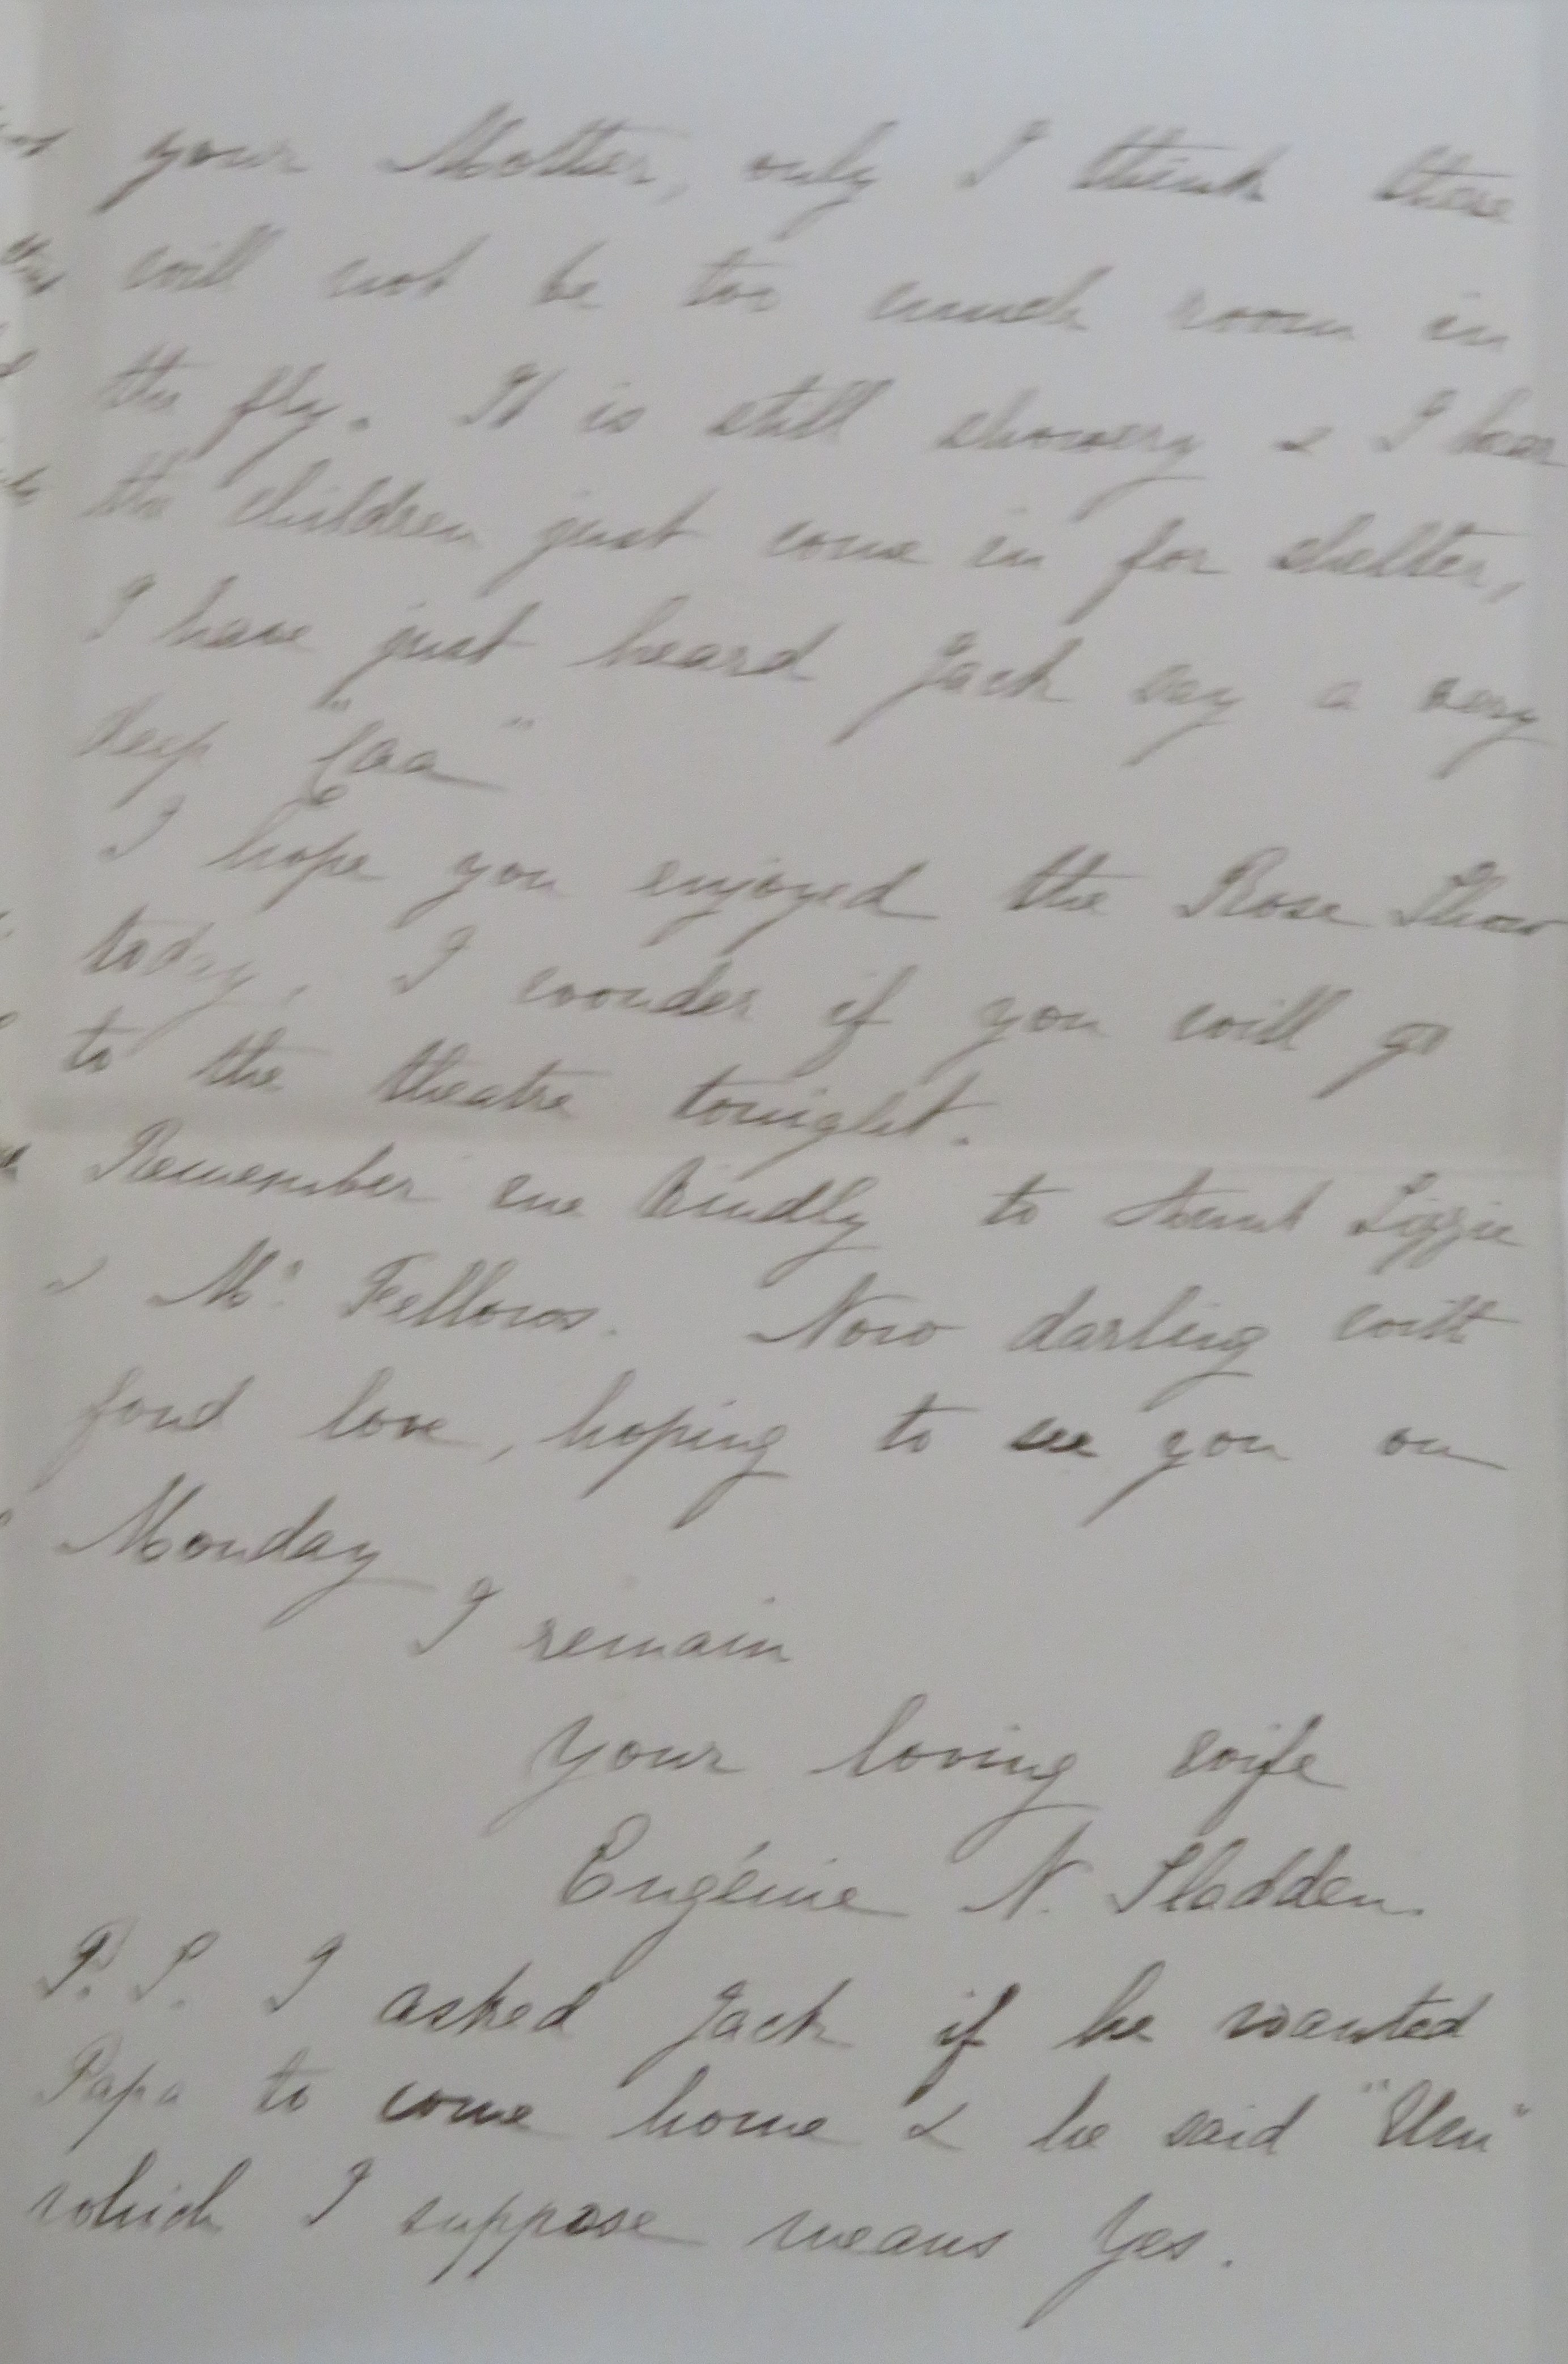 your Mother, only I think there
will not be too much room in
the fly. It is still showery & I hear
the children just come in for shelter,
I have just heard Jack say a very
deep "
I hope you enjoyed the Rose Show
today, I wonder if you will go
to the theatre tonight.
Remember me kindly to Aunt Lizzie
& Mr. Fellows. Now darling with
fond love, hoping to see you on
Monday
I remain
Your loving wife
Eugénie N. Sladden.
P. S. I asked Jack if he wanted
Papa to come home & he said "Um"
which I suppose means Yes.